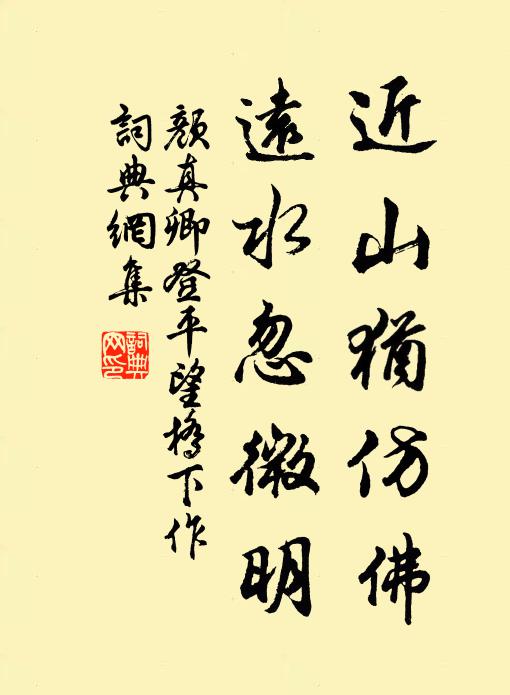 近山猶仿佛
遠水忽微明
顏真卿登平望橋下作
詞典網集
詞典網印